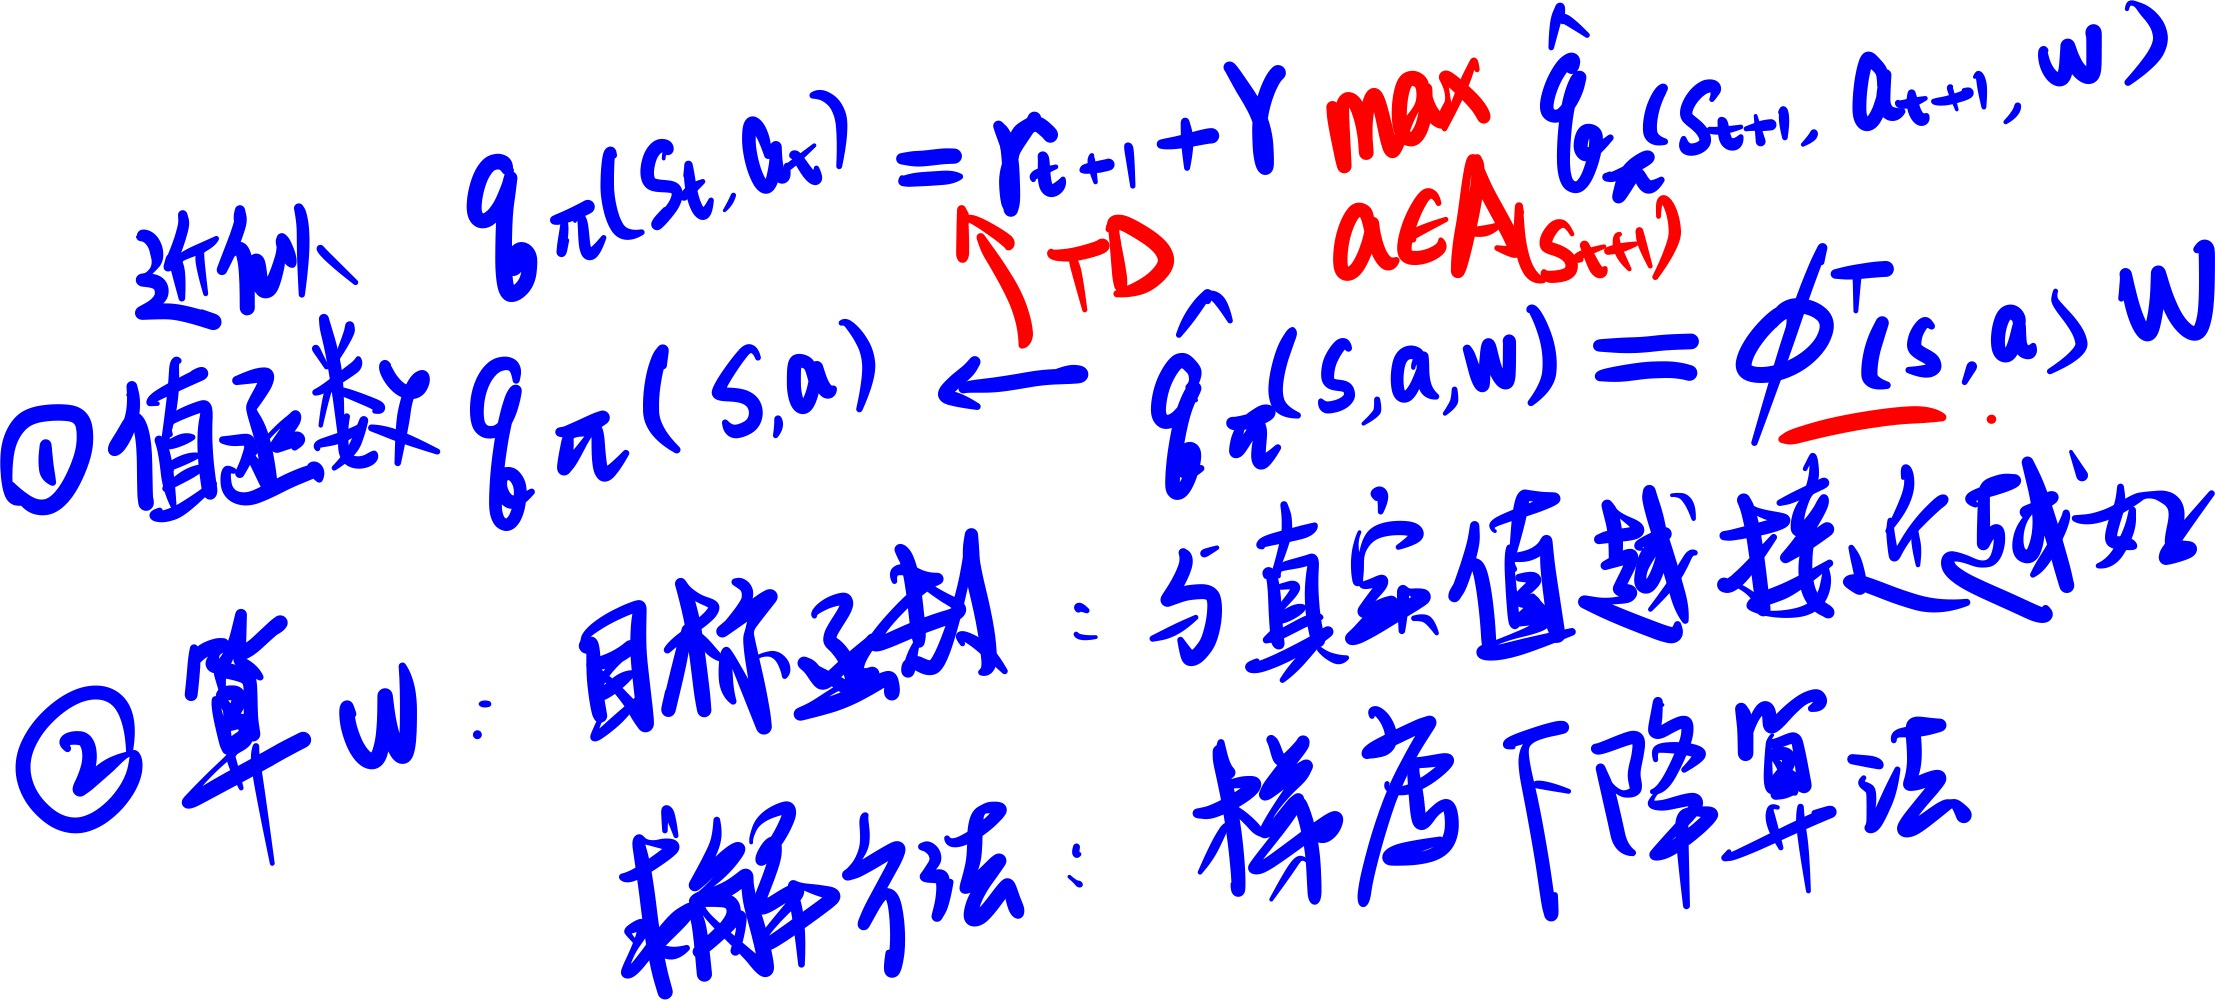 q_π(s_t, a_t) = r_{t+1} + γ max_{a∈A(s_{t+1})} q̂_π(s_{t+1}, a_{t+1}, w)
↑TD
近似
① 值函数 q_π(s,a) ← q̂_π(s,a,w) = φ^T(s,a) w
② 算w: 目标函数: 与真实值越接近越好
求解方法: 梯度下降算法